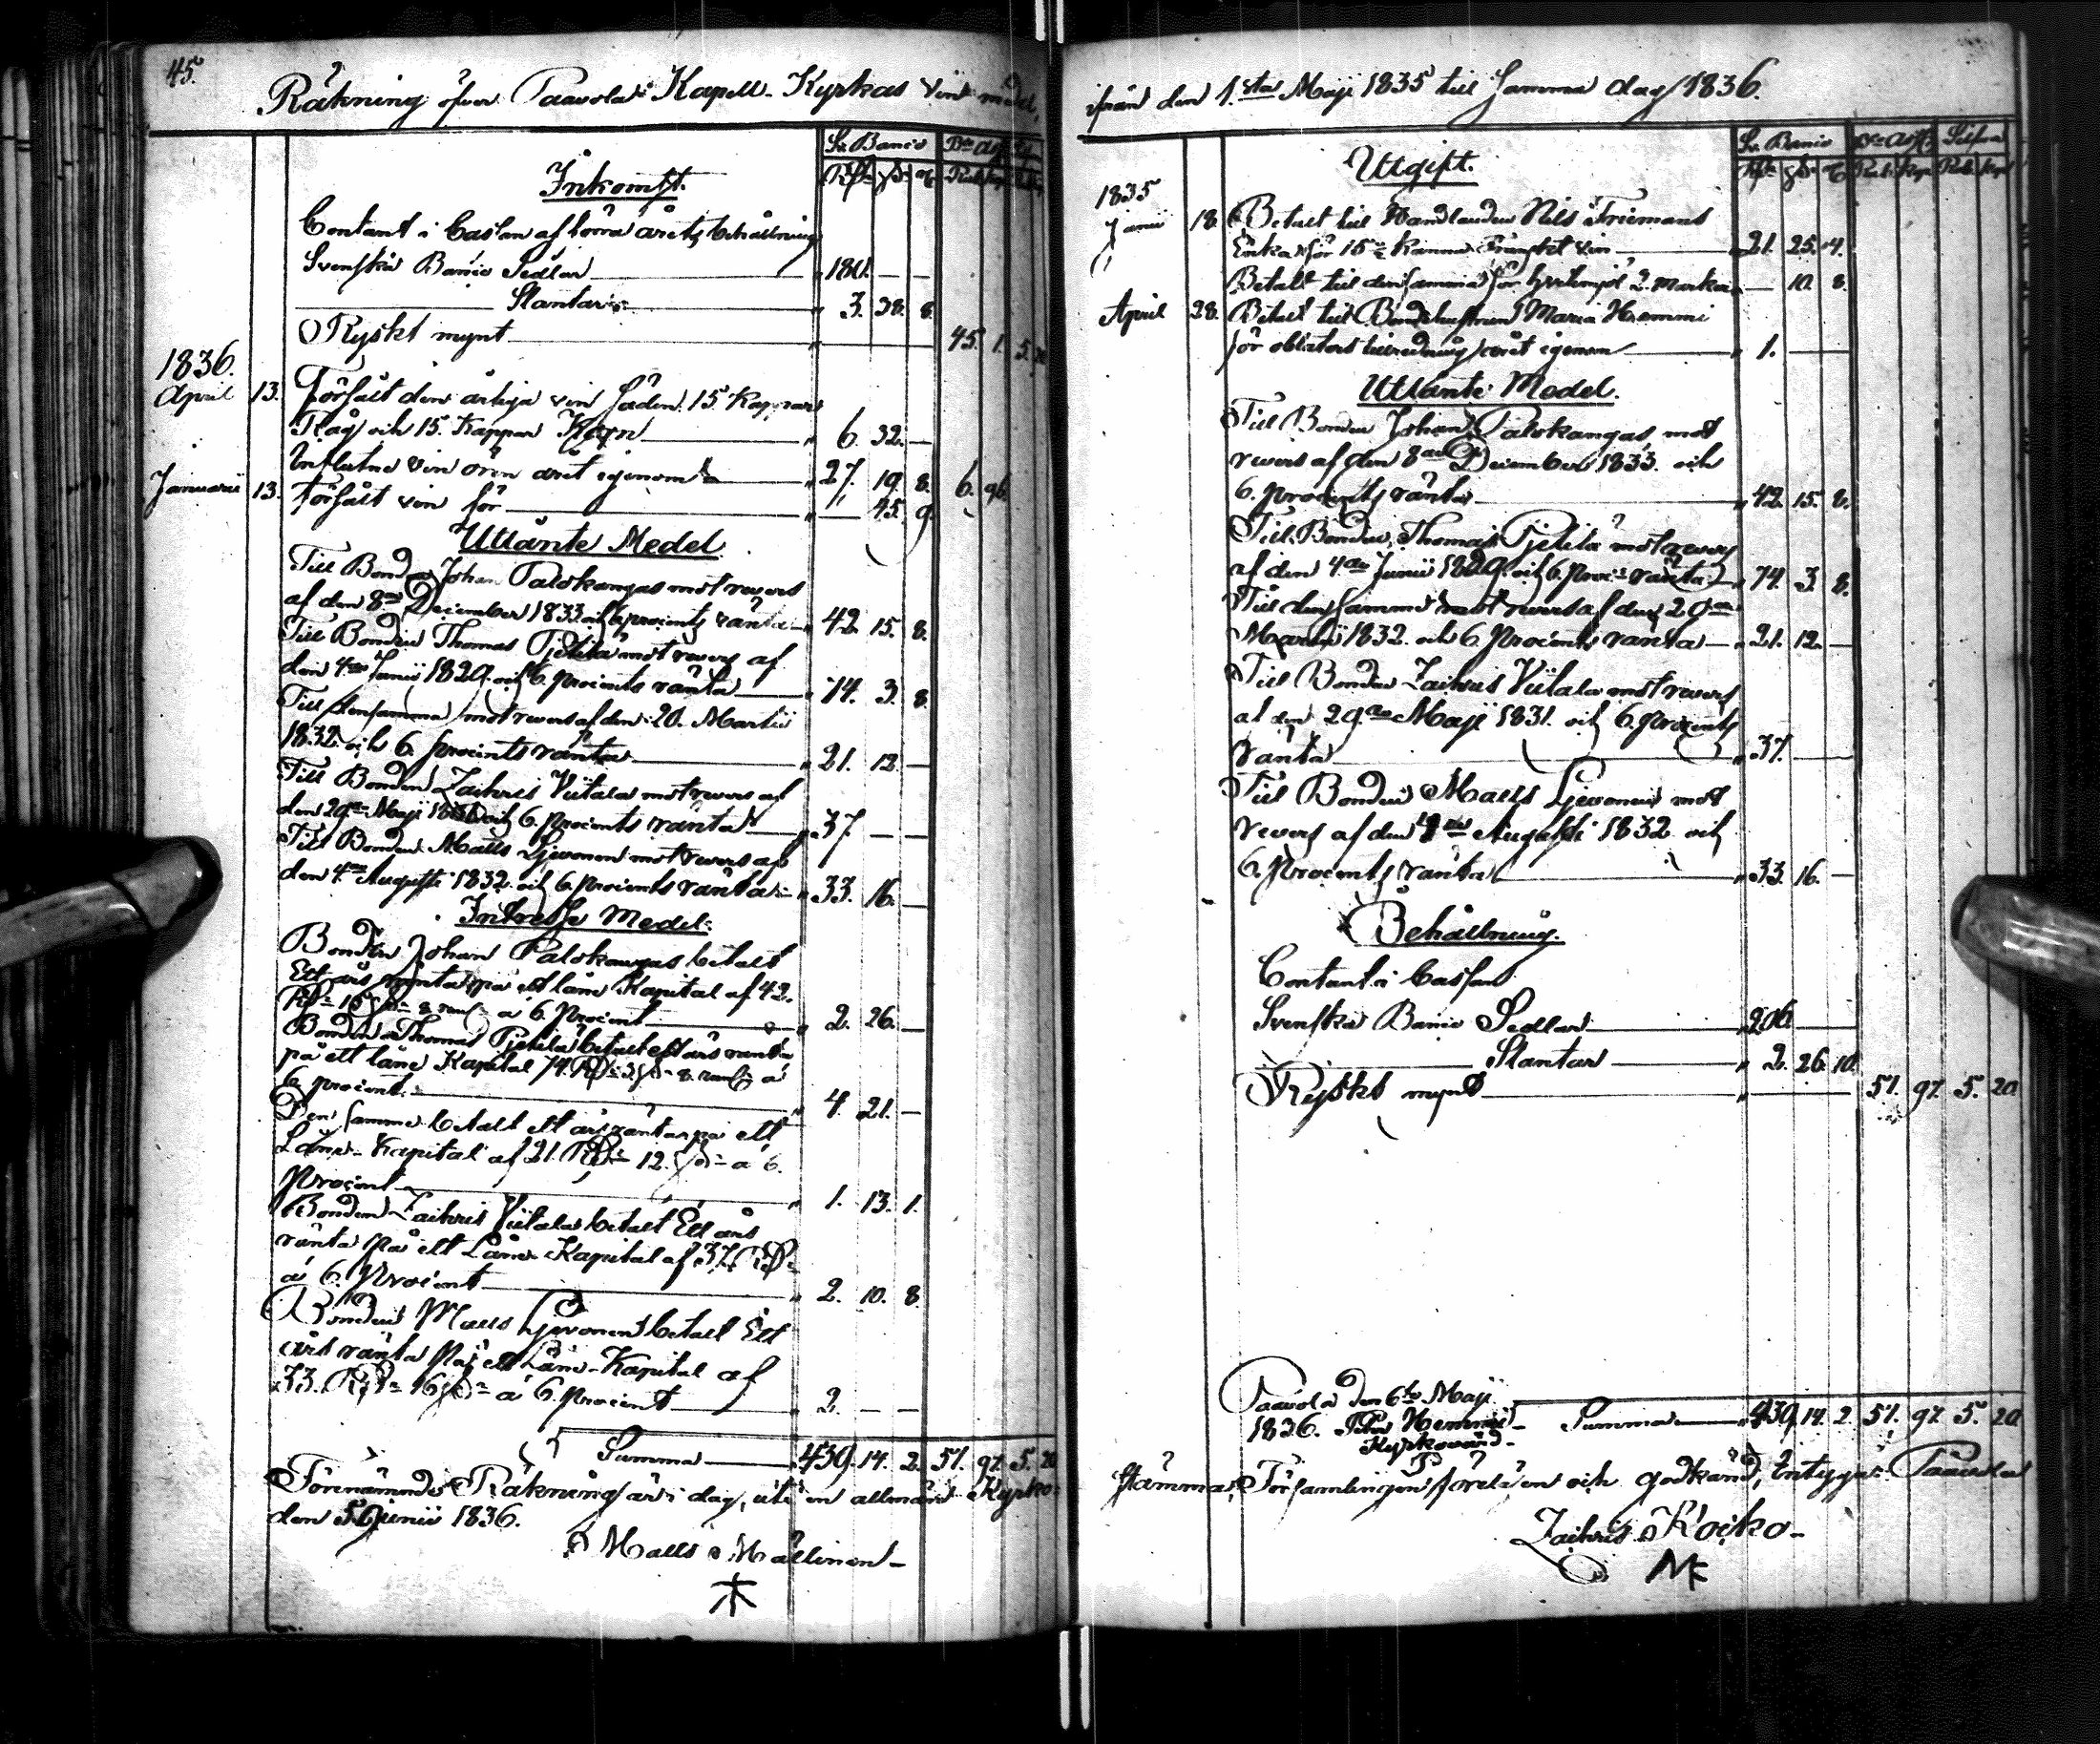 45.
Räkning öfver Paavola Kapell-Kyrkas vin medel,
Sv. Banco Bco Ass.
Inkomst.
Contant i Cassan af förra årets behållning
Svenska Banco Sedlar 180. — —
Slantar 3. 38. 8.
Ryskt mynt 45. 1. 5. 20
1836.
April 13. Försålt den årliga vin säden 15 Kappar
Råg och 15. Kappar Korn 6. 32. —
Influtne vin ören året igenom 27. 19. 8. 6. 96.
Januarii 13. Försålt vin för — 45. 9.
Utlånte Medel
Till Bonden Johan Palokangas mot revers
af den 8de December 1833 och 6 procents ränta 42. 15. 8.
Till Bonden Thomas Pjetilä mot revers af
den 4de Junii 1829. och 6. procents ränta 74. 3. 8.
Till densamma mot revers af den 20. Martii
1832 och 6. procents ränta 21. 12. —
Till Bonden Zachris Viitala mot revers af
den 29de Maji 1831 och 6. procents ränta 37. — —
Till Bonden Matts Ljevonen mot revers af
den 4de Augusti 1832. och 6. procents ränta 33. 16. —
Intresse Medel.
Bonden Johan Palokangas betalt
Ett års ränta på ett låne Kapital af 42.
Rd 15 s 8 r á 6. Procent 2. 26. —
Bonden Thomas Pjetilä betalt ett års ränta
på ett låne Kapital 74. Rd 3 s 8. r á
6. procent. 4. 21. —
Den samma betalt ett års ränta på ett
Låne-Kapital af 21. Rd 12. s á 6.
Procent 1. 13. 1.
Bonden Zachris Viitala betalt Ett års
ränta på ett Låne-Kapital af 37. Rd
á 6. Procent 2. 10. 8.
Bonden Matts Ljevonen betalt Ett
års ränta på ett Låne-Kapital af
33. Rd 16 s á 6. procent 2. — —
Summa 439. 14. 2. 51. 97. 5. 20
Förenämnde Räkning är i dag, uti en allmän Kyrko-
den 5 Junii 1836.
Matts Mällinen
ifrån den 1.sta Maji 1835 till samma dag 1836.
Sv. Banco Bco Ass. Silfver
Utgift.
1835
Junii 18. Betalt till Handlanden Nils Friemans
Enka för 15 Kannor Franskt vin 21. 25. 4.
Betalt till densamma för hvetmjöl 2. Markar — 10. 8.
April 28. Betalt till Bondehustrun Maria Hemmi
för oblaters tillredning året igenom 1. —
Utlånte Medel.
Till Bonden Johan Palokangas mot
revers af den 8de December 1833. och
6. procents ränta 42. 15. 8.
Till Bonden Thomas Pjetilä mot revers
af den 4de Junii 1829. och 6. Procents ränta 74. 3. 8.
Till densamma mot revers af den 20de
Martii 1832. och 6. Procents ränta 21. 12. —
Till Bonden Zachris Viitala mot revers
af den 29de Maji 1831. och 6. procents
ränta 37. —
Till Bonden Matts Ljevonen mot
revers af den 4de Augusti 1832. och
6. Procents ränta 33. 16. —
Behållning.
Contant i Cassan
Svenska Banco Sedlar 206 —
Slantar 2. 26. 10.
Ryskt mynt 51. 97. 5. 20
Paavola den 6te Maji
1836. Petr Hemmi Summa 439. 14. 2. 51. 97. 5. 20
Kyrkovärd.
stämma, Församlingen föreläsen och godkänd, intygar Paavola
Zachris Koicko